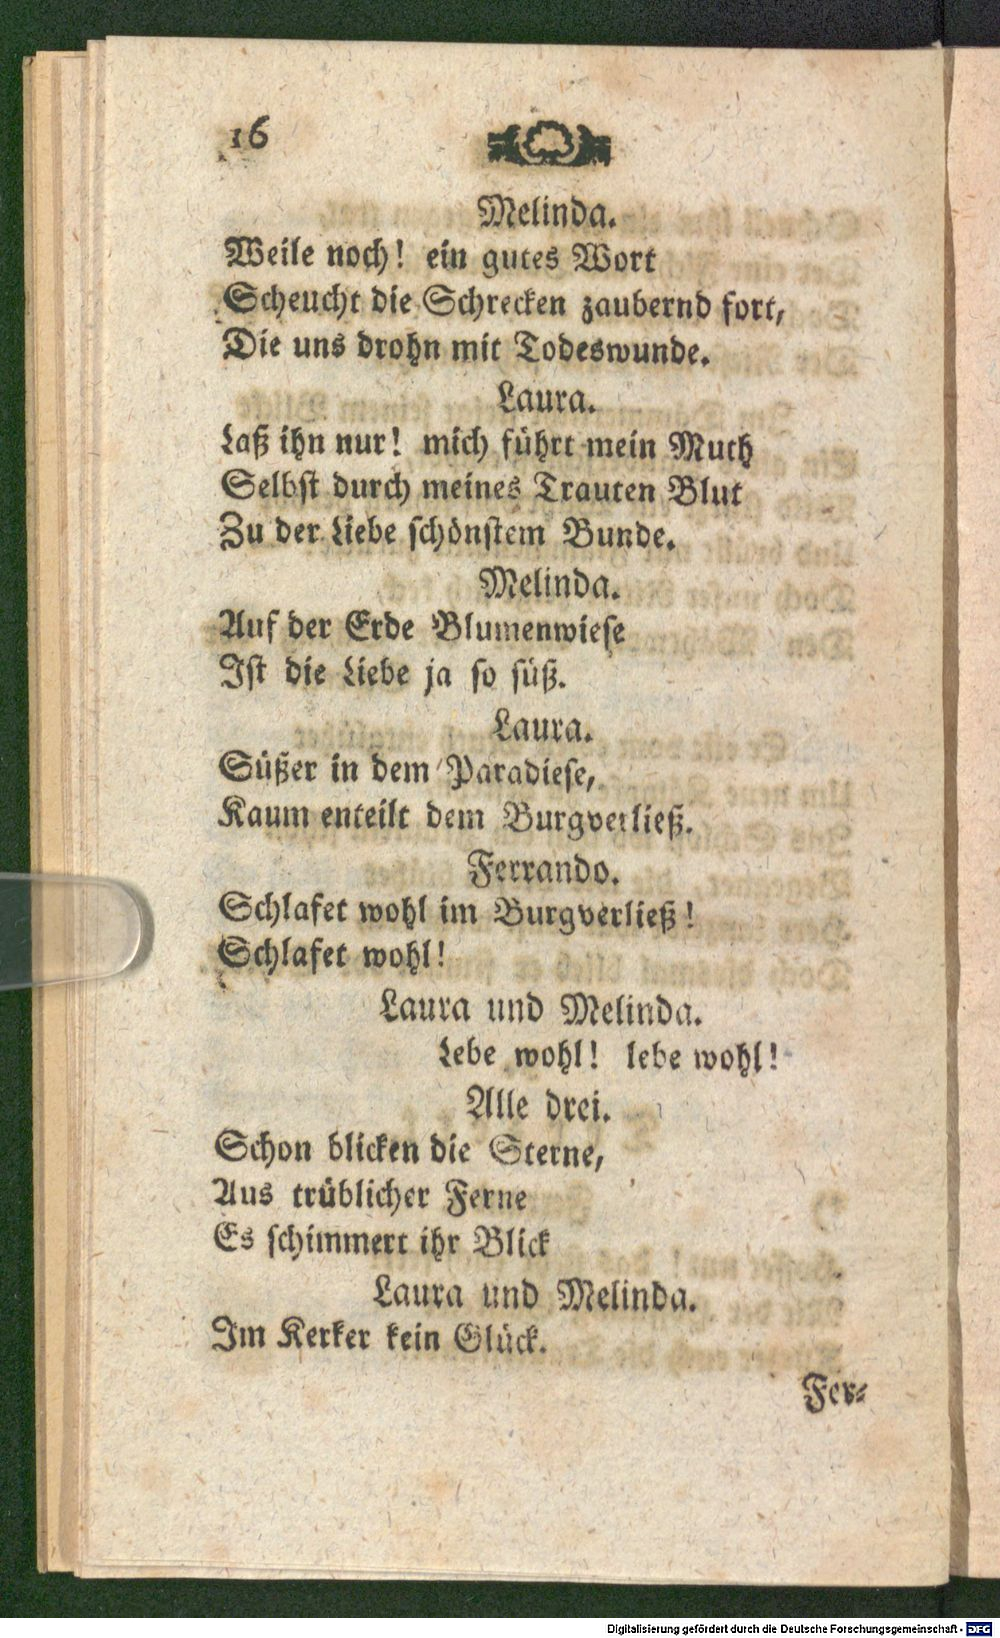 16
Melinda.
Weile noch! ein gutes Wort
Scheucht die Schrecken zaubernd fort,
Die uns drohn mit Todeswunde.
Laura.
Laß ihn nur! mich führt mein Muth
Selbst durch meines Trauten Blut
Zu der Liebe schönstem Bunde.
Melinda.
Auf der Erde Blumenwiese
Ist die Liebe ja so süß.
Laura.
Süßer in dem Paradiese,
Kaum enteilt dem Burgverließ.
Ferrando.
Schlafet wohl im Burgverließ!
Schlafet wohl!
Laura und Melinda.
Lebe wohl! lebe wohl!
Alle drei.
Schon blicken die Sterne,
Aus trüblicher Ferne
Es schimmert ihr Blick
Laura und Melinda.
Im Kerker kein Glück.
Fer-
Digitalisierung gefördert durch die Deutsche Forschungsgemeinschaft - DFG